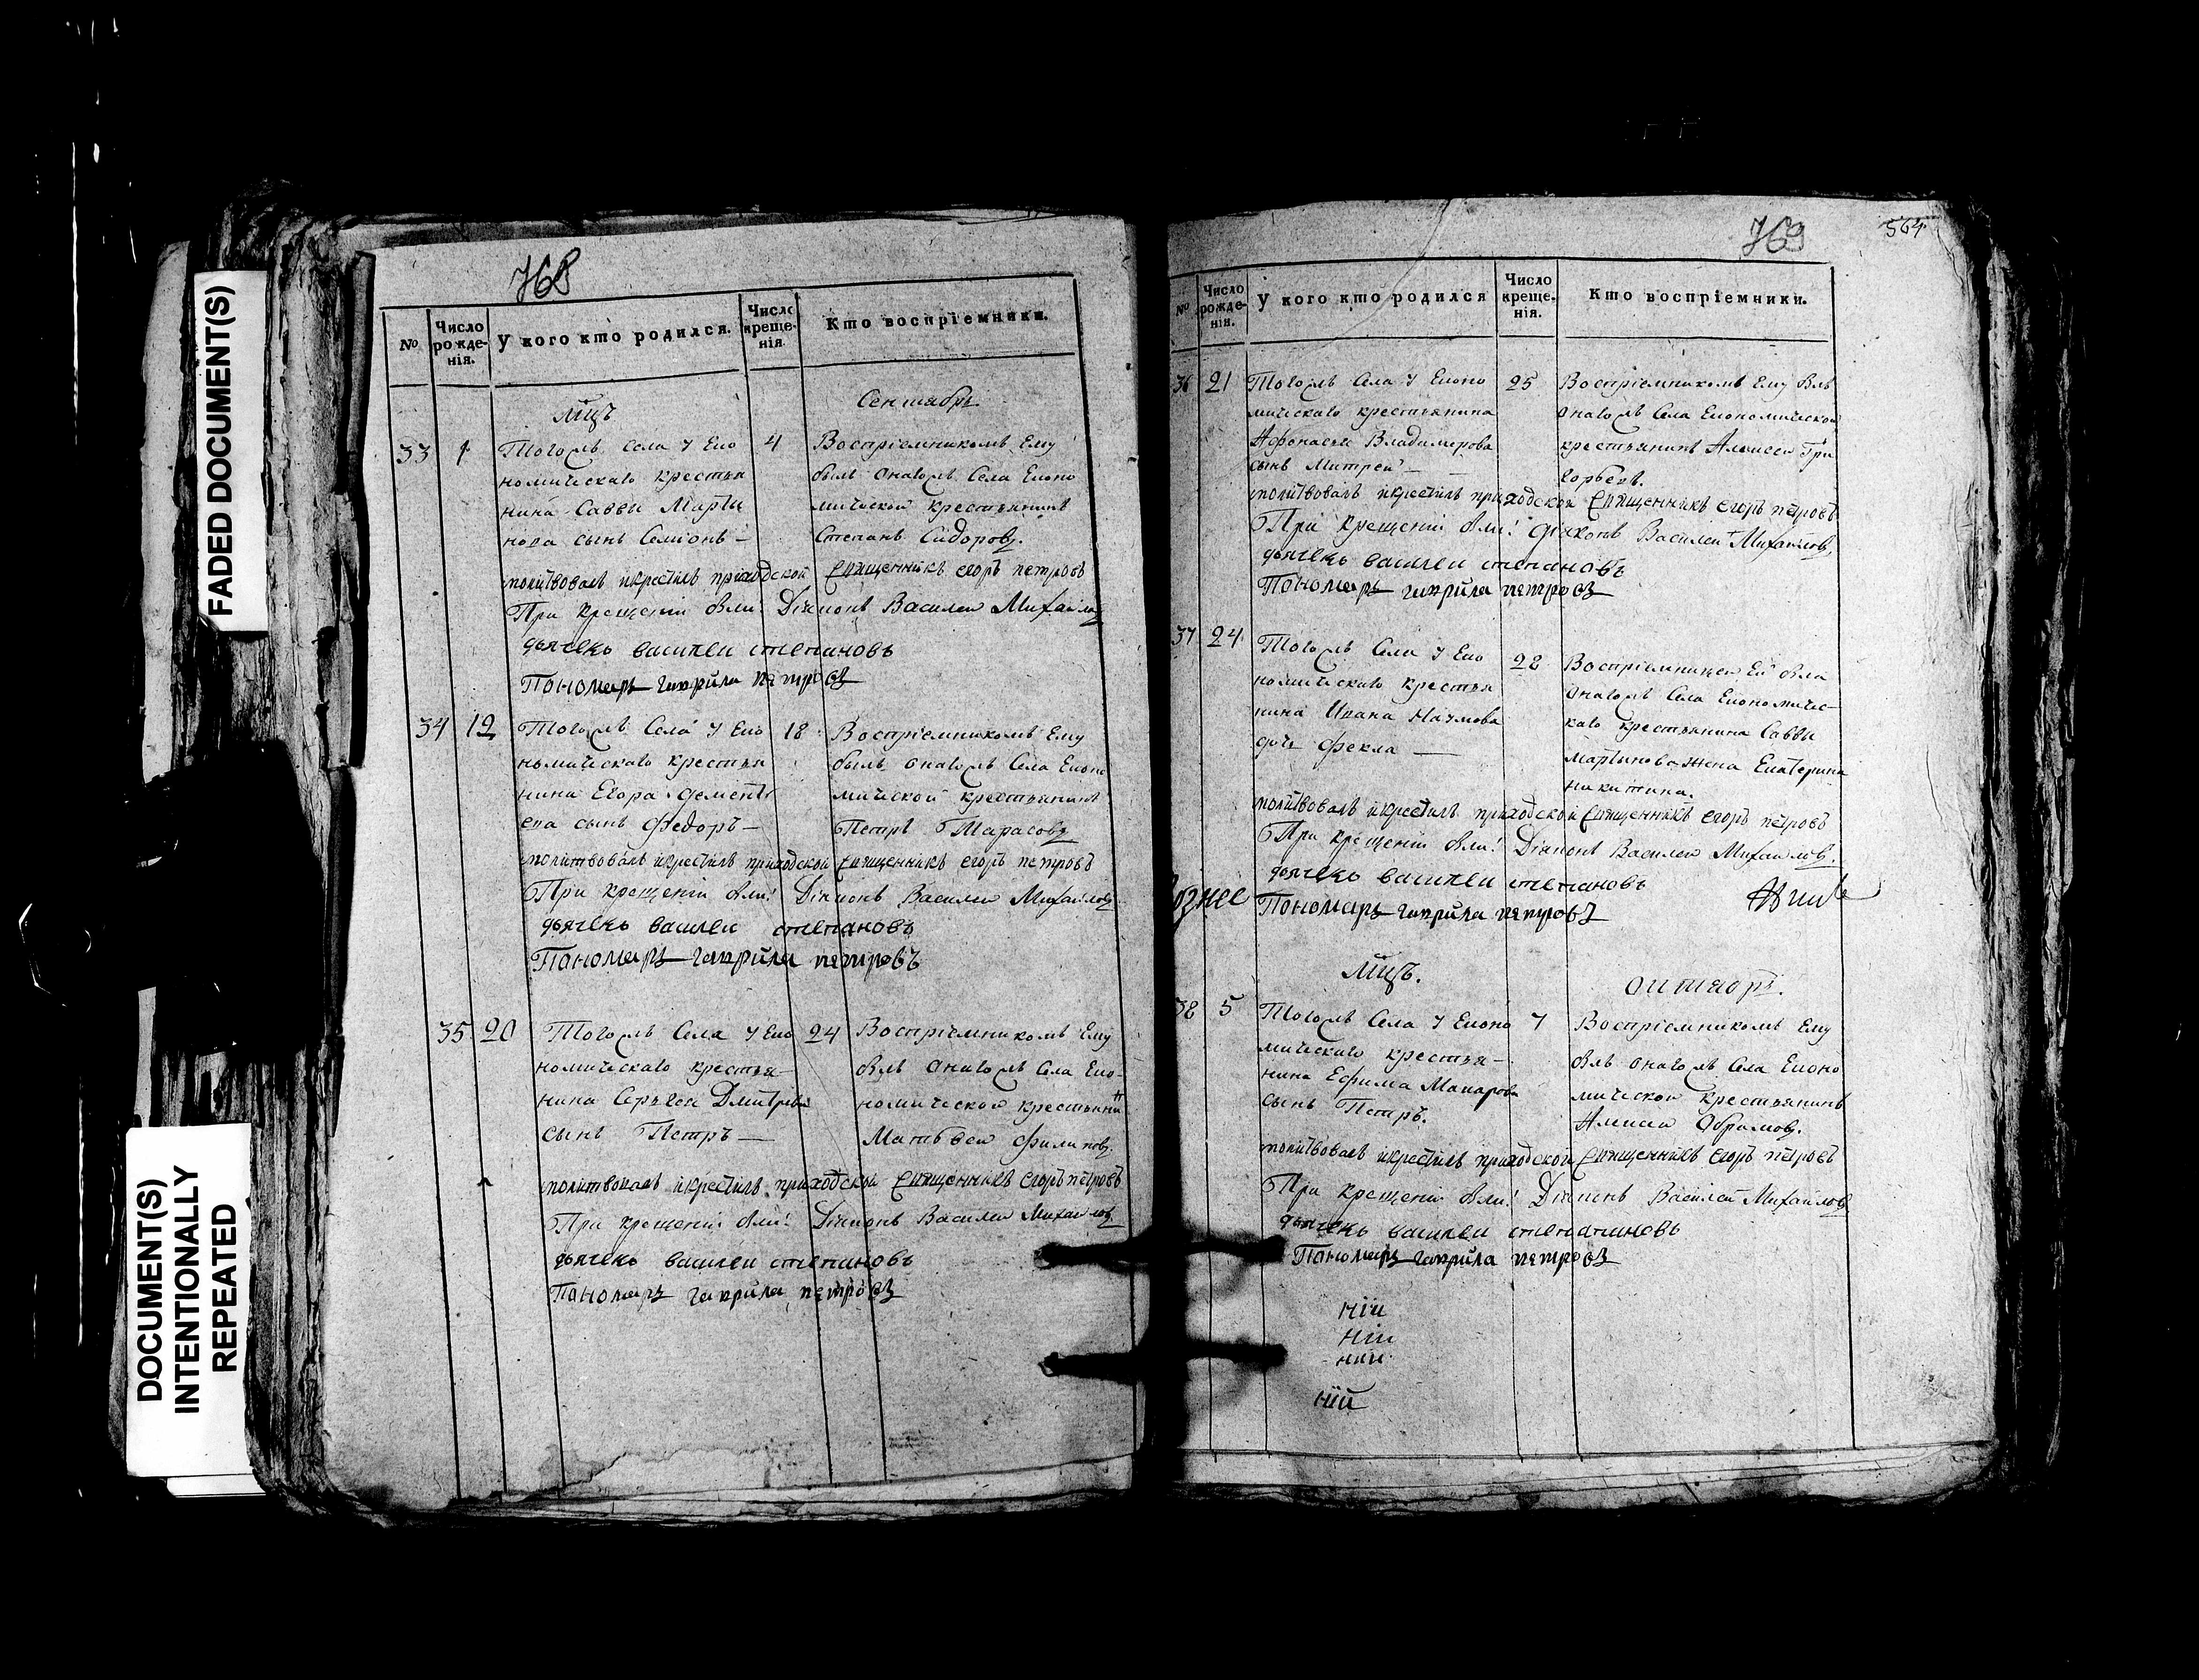 FADED DOCUMENT(S)
DOCUMENT(S)
INTENTIONALLY
REPEATED
768
№
Число рожде-нія.
У кого кто родился.
Число креще-нія.
Кто воспріемники.
Мцъ
Сентябрь
33 1 Тогожъ села У Еко 4
номическаго крестья
нина Саввы Марты
нова сынъ Семіонъ —
Воспріемникомъ Ему
былъ онагожъ Села Еконо
мической крестьянинъ
Степанъ Сидоровъ.
молитвовалъ икрестилъ приходской Священникъ егоръ петровъ
При крещеніи были: Діаконъ Василеи Михаиловъ
дьячекъ василеи степановъ
Пономарь гаврила петровъ
34 12 Тогожъ Села У Еко 18
номическаго крестья
нина Егора Дементь
ева сынъ Федоръ —
Воспріемникомъ Ему
былъ онагожъ Села Еконо
мической крестьянинъ
Петръ Тарасовъ
молитвовалъ икрестилъ приходской Священникъ егоръ петровъ
При крещеніи были: Діаконъ Василеи Михаиловъ
дьячекъ василеи степановъ
Пономарь гаврила петровъ
35 20 Тогожъ Села У Еко 24
номическаго крестья—
нина Сергея Дмитрева
сынъ Петръ —
Воспріемникомъ Ему
былъ онагожъ Села Еко-
номическои крестьянинъ
Матьвеи Филиповъ
молитвовалъ икрестилъ приходской Священникъ егоръ петровъ
При крещеніи были: Діаконъ Василеи Михаиловъ
дьячекъ василеи степановъ
Пономарь гаврила петровъ
769
564
№
Число рожде-нія.
У кого кто родился
Число креще-нія.
Кто воспріемники.
36 21 Тогожъ Села У Еконо 25
мическаго крестьянина
Афонасья Владимерова
сынъ Митрей —
Воспріемникомъ Ему былъ
онагожъ Села Економической
крестьянинъ Алексеи Гри
горьевъ.
молитвовалъ икрестилъ приходской Священникъ егоръ петровъ
При крещеніи были: Діаконъ Василеи Михаиловъ
дьячекъ василеи степановъ
Пономарь гаврила петровъ
37 24 Тогожъ Села У Еко 28
номическаго крестья
нина Ивана Наумова
дочь Фекла —
Воспріемницеи Ей была
онагожъ Села Економичес-
каго крестьянина Саввы
мартынова жена Екатерина
никитина.
молитвовалъ икрестилъ приходской Священникъ егоръ петровъ
При крещеніи были: Діаконъ Василеи Михаиловъ.
дьячекъ василеи степановъ
Пономарь гаврила петровъ
Мцъ.
октябрь.
38 5 Тогожъ Села У Еконо 7
мическаго крестья—
нина Ефима Макарова
сынъ Петръ.
Воспріемникомъ Ему
былъ онагожъ Села Еконо
мическои крестьянинъ
Алексеи Обрамовъ.
молитвовалъ икрестилъ приходской Священникъ егоръ петровъ
При крещеніи были: Діаконъ Василей Михаиловъ
дьячекъ василеи степановъ
Пономарь гаврила петровъ